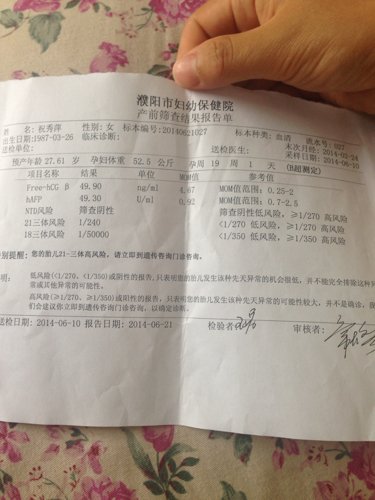 濮阳市妇幼保健院
产前筛查结果报告单
名: 祝秀萍 性别: 女 标本编号: 20140621027 标本种类: 血清 流水号: 027
出生日期: 1987-03-26 临床诊断: 末次月经: 2014-02-24
送检单位: 送检医生: 采样日期: 2014-06-10
预产年龄 27.61 岁 孕妇体重 52.5 公斤 孕周 19 周 1 天 (B超测定)
项目名称 结果 单位 MOM值 参考值
Free-hCG β 49.90 ng/ml 4.67 MOM值范围: 0.25-2
hAFP 49.30 U/ml 0.92 MOM值范围: 0.7-2.5
NTD风险 筛查阴性 筛查阴性低风险,
21三体风险 1/240 <1/270 低风险, ≥1/270 高风险
18三体风险 1/50000 <1/350 低风险, ≥1/350 高风险
特别提醒: 您胎儿21-三体高风险, 请立即到遗传咨询门诊咨询。
说明: 低风险(<1/270、<1/350)或阴性的报告, 只表明您的胎儿发生该种先天异常的机会很低, 并不能完全排除这种异
常或其他异常的可能性。
高风险(≥1/270、≥1/350)或阳性的报告, 只表明您的胎儿发生该种先天异常的可能性较大, 并不是确诊, 我
们会建议你立即到遗传咨询门诊咨询, 以确定诊断。
送检日期: 2014-06-10 报告日期: 2014-06-21 检验者 审核者: